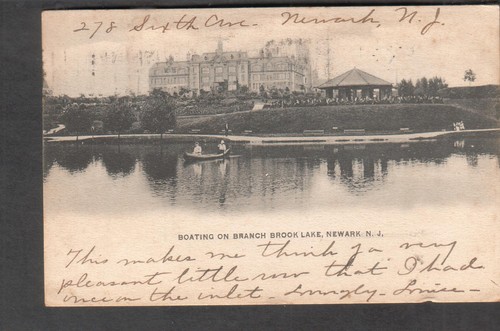 278 Sixth Ave. Newark, N.J.
BOATING ON BRANCH BROOK LAKE, NEWARK N. J.
This makes me think of a very
pleasant little row that I had
once on the inlet -